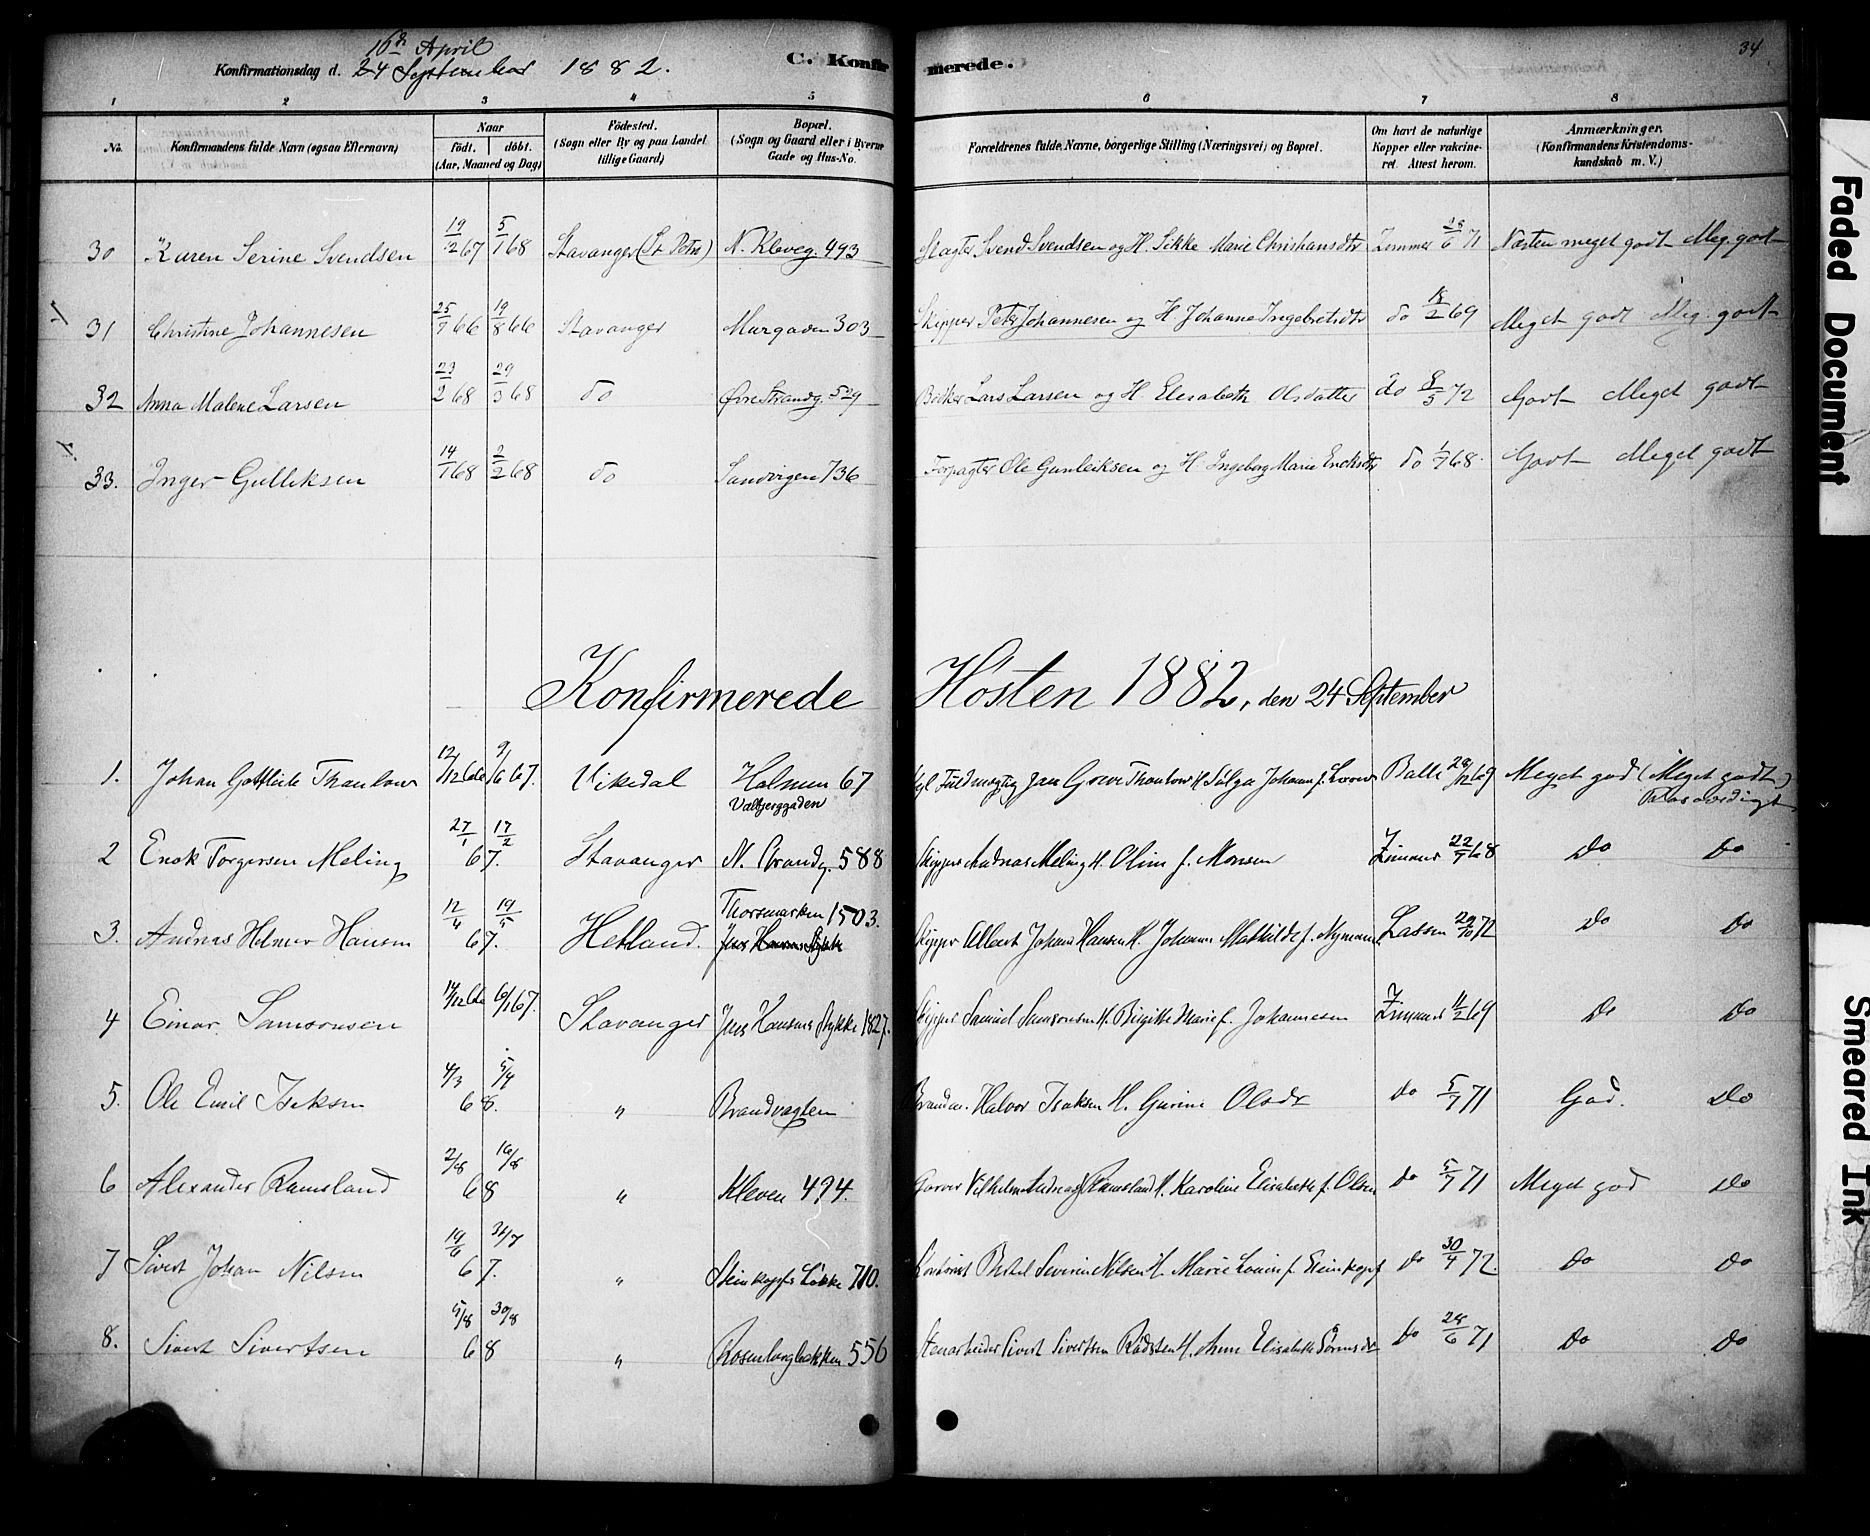 16de April
Konfirmationsdag d. 24 September 1882.
C. Konfirmerede.
34
1 2 3 4 5 6 7 8
No.
Konfirmandens fulde Navn (ogsaa Efternavn)
Naar
født. døbt.
(Aar, Maaned og Dag)
Fødested.
(Sogn eller By og paa Landet
tillige Gaard)
Bopæl.
(Sogn og Gaard eller i Byerne
Gade og Hus-No.
Forældrenes fulde Navne, borgerlige Stilling (Næringsvei) og Bopæl.
Om havt de naturlige
Kopper eller vakcine-
ret. Attest herom.
Anmærkninger.
(Konfirmandens Kristendoms-
kundskab m. V.)
30 Karen Serine Svendsen 19/12 67 5/1 68 Stavanger (St. Petri) N. Kleveg. 493 Slagter Svend Svendsen og H. Sikke Marie Christiansdtr Zimmer 25/6 71 Næsten meget godt Meg. godt
31 Christine Johannesen 25/7 66 19/8 66 Stavanger Murgaden 303 Skipper Peter Johannesen og H. Johanne Ingebretsdtr do 18/2 69 Meget godt Meg. godt
32 Anna Malene Larsen 23/2 68 29/3 68 do Øvre Strandg. 529 Lars Larsen og H. Elisabeth Olsdatter do 8/5 72 Godt Meget godt
33. Inger Gulliksen 14/1 68 2/2 68 do Sandvigen 736 Forpagter Ole Gunleiksen og H. Ingeborg Marie Ericksdtr do 1/7 68. Godt Meget godt
Konfirmerede Høsten 1882, den 24 September
1. Johan Gottlieb Thaulow 12/12 66 9/6 67. Vikedal Holmen 67 Thaulow H. Johanne f. Balle 29/12 69 Meget god (Meget godt)
Valbjerggaden
2 Enok Torgersen Meling 27/1 17/2 67. Stavanger N. Strandg. 588 Skipper Andreas Meling H. Oline f. Monsen Zimmer 22/7 68 do do
3. Andreas Helmer Hansen 12/4 19/5 67. Hetland. Thorsmarken 1503. Skipper Albert Johan Hansen H. Johanne Mathilde f. Nyman Lassen 29/10 72 do do
4 Einar Samsonsen 14/12 66 6/1 67. Stavanger Jens Hansens Stykke 1827. Skipper Samuel Samsonsen H. Birgitte Marie f. Johannesen Zimmer 11/2 69 do do
5. Ole Emil Isaksen 4/3 5/4 68. " Brandvagten Halvor Isaksen H. Gurine Olsdr do 5/7 71 God. do
6 Alexander Ramsland 2/8 16/8 68 " Kleven 494. Garver Vilhelm Andreas Ramsland H. Karoline Elisabeth f. Olsen do 5/7 71 Meget god do
7 Sivert Johan Nilsen 19/6 31/7 67. " Steinkopfs Løkke 710. Severin Nilsen H. Marie Louise f. Steinkopf do 30/4 72. do do
8. Sivert Sivertsen 5/8 30/8 68 " Rosenborgbakken 556 Stenarbeider Sivert Sivertsen H. Anne Elisabeth Sørensdr do 28/6 71 do do
Faded Document
Smeared Ink